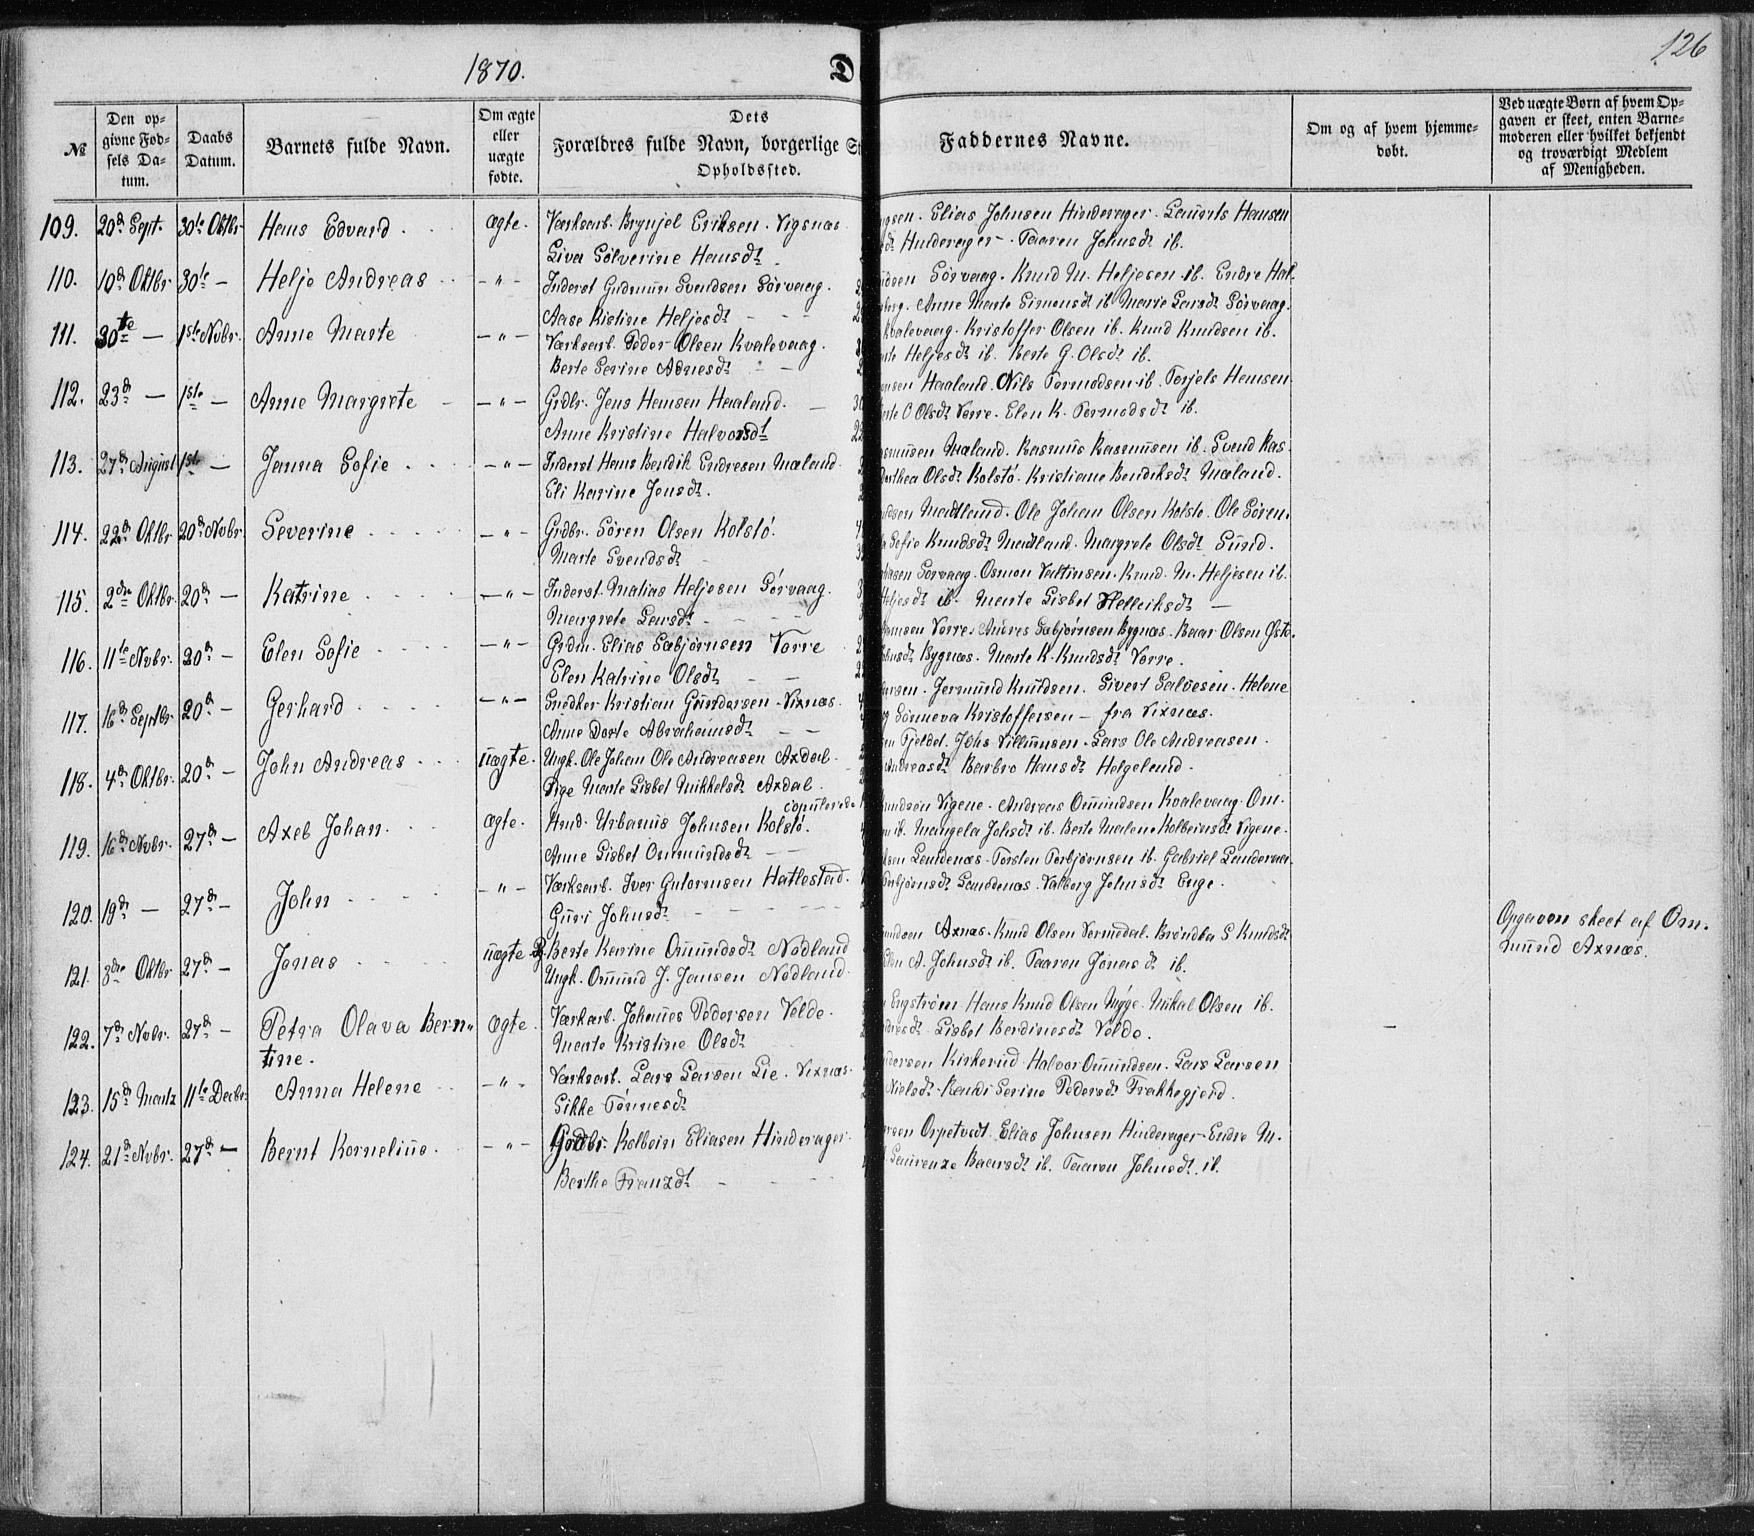 1870.
D
126
№
Den op-
givne Fød-
sels Da-
tum.
Daabs
Datum.
Barnets fulde Navn.
Om ægte
eller
uægte
fødte.
Dets
Forældres fulde Navn, borgerlige St
Opholdssted.
Faddernes Navne.
Om og af hvem hjemme-
døbt.
Ved uægte Børn af hvem Op-
gaven er skeet, enten Barne-
moderen eller hvilket bekjendt
og troværdigt Medlem
af Menigheden.
109. 20d Sept. 30te Oktbr. Hans Edvard ægte. Værksarb. Brynjel Eriksen. Vigsnæs
Siva Sølverine Hansdt.
Elias Johnsen Hinderager. Laurits Hansen
Hinderager - Taaren Johnsdt ib.
110. 10d Oktbr 30te - Helje Andreas -"- Inderst Gudmun Svendsen Sörvaag.
Aase Kistine Heljesdt
Sörvaag. Knud M. Heljesen ib. Endre Hal-
Anne Marte Simonsdt ib Marie Larsdt Sörvaag.
111. 30te - 1ste Novbr. Anne Marte -"- Værksarb. Peder Olsen Kvalevaag.
Berte Serine Adnesdt
Kvalevaag. Kristoffer Olsen ib. Knud Knudsen ib.
Heljesdt ib. Berte G. Olsdt ib.
112. 23d - 1ste - Anne Margrete -"- Grdbr. Jens Hansen Haaland.
Anne Kristine Halvorsdt
Haaland. Nils Tormodsen ib. Torjels Hansen
O Olsdt Vorre. Elen K. Tormodsdt ib.
113. 27d August 1ste - Janna Sofie -"- Inderst Hans Bendik Endresen Mæland.
Eli Karine Jensdt.
Mæland. Rasmus Rasmusen ib. Svend Ras-
Olsdt Kolstö. Kristiane Bendiksdt Mæland.
114. 22d Oktbr 20d Novbr. Severine -"- Grdbr. Sören Olsen Kolstö.
Marte Svendsdt
Ole Johan Olsen Kolstö. Ole Sören-
Sofie Knudsdt Margrete Olsdt Sund.
115. 2den Oktbr. 20d - Katrine -"- Inderst. Matias Heljesen Sörvaag.
Margrete Larsdt
Sörvaag. Osmon Valtinsen. Knud. M. Heljesen ib.
Heljesdt ib. Marte Lisbet Helleiksdt -
116. 11te Nvbr. 20d - Elen Sofie -"- Grdm. Elias Sæbjörnsen Vorre
Elen Katrine Olsdt
Vorre. Andres Sæbjörnsen Bygnæs. Baar Olsen Östo.
Bygnæs. Marte K. Knudsdt Vorre.
117. 16d Septbr 20d - Gerhard -"- Snedker Kristian Gundersen. Vixnæs.
Anne Dorte Abrahamsdt
Jermund Knudsen. Sivert Salvesen. Helene
Sönneva Kristoffersen - fra Vixnæs.
118. 4d Oktbr. 20d - John Andreas uægte. Ungk. Ole Johan Ole Andreasen Axdal.
Pige Marte Lisbet Mikkelsdt Axdal.
Fjeldet. Johs Villumsen. Lars Ole Andreasen.
Andreasdt Barbro Hansdt Helgeland.
119. 16d Nvbr. 27d - Axel Johan. ægte. copulerede
Urbanus Johnsen Kolstö.
Anne Lisbet Ommundsdt
Vigene. Andreas Omundsen Kvalevaag. Om-
ib. Mangela Johsdt ib. Berte Malene Kolbeinsdt Vigene.
120. 19d - 27d - John -"- Værksarb. Iver Gutormsen Hatlestad.
Guri Johnsdt
Torsten Torbjörnsen ib. Gabriel
Valborg Johnsdt Enge.
121. 3die Oktbr 27d - Jonas uægte P. Berte Karine Omundsdt Nodland
Ungk. Omund J. Jansen Nodland.
Axnæs. Knud Olsen Vormedal. Bröndba S Knudsdt
Elen A. Johnsdt ib. Taaren Jonasdt ib.
Opgaven skeet af Om-
mund Axnæs.
122. 7d Nvbr. 27d - Petra Olava Bern-
tine. ægte. Værkarb. Johannes Pedersen Velde.
Marte Kristine Olsdt
Engström Hans Knud Olsen Myge. Mikal Olsen ib.
Lisbet Berdinesdt Velde.
-
123. 15d Martz 11te Decbr. Anna Helene -"- Værksarb. Lars Larsen Lie. Vixnæs.
Sikke Tönnesdt
Kirkerud Halvor Omundsen. Lars Larsen
Nielsdt. Randi Serine Pedersdt Frakkegjerd.
124. 21d Nvbr. 27d - Bernt Kornelius. -"- Grdbr. Kolbein Eliasen Hinderager.
Berthe Franzdt
Orpetvedt. Elias Johnsen Hinderager. Endre M.
Laurenze Baarsdt ib. Taaren Johnsdt. ib.